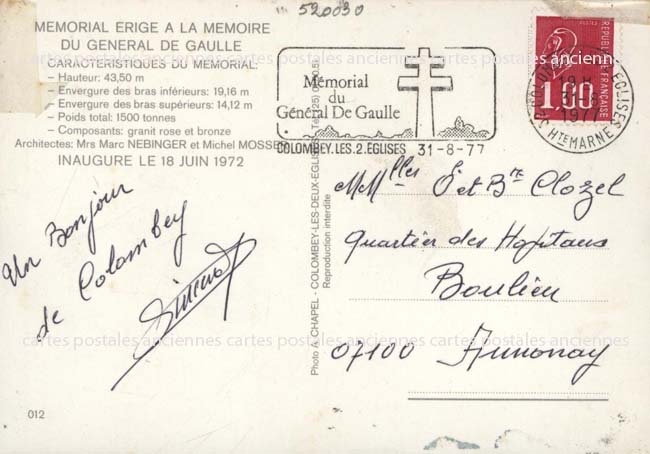 520030
MEMORIAL ERIGE A LA MEMOIRE
DU GENERAL DE GAULLE
CARACTERISTIQUES DU MEMORIAL:
— Hauteur: 43,50 m
— Envergure des bras inférieurs: 19,16 m
— Envergure des bras supérieurs: 14,12 m
— Poids total: 1500 tonnes
— Composants: granit rose et bronze
Architectes: Mrs Marc NEBINGER et Michel MOSSER
INAUGURE LE 18 JUIN 1972
Un Bonjour
de Colombey
012
Photo A. CHAPEL - COLOMBEY-LES-DEUX-EGLISES
Reproduction interdite
Mémorial
du
Général De Gaulle
COLOMBEY.LES.2.EGLISES 31-8-77
REPUBLIQUE FRANÇAISE
1,00
EGLISES
HTE MARNE
1977
MMlles S et Bte Clozel
Quartier des Hopitaux
Boulieu
07100 Annonay
cartes postales anciennes cartes postales anciennes cartes postales anciennes